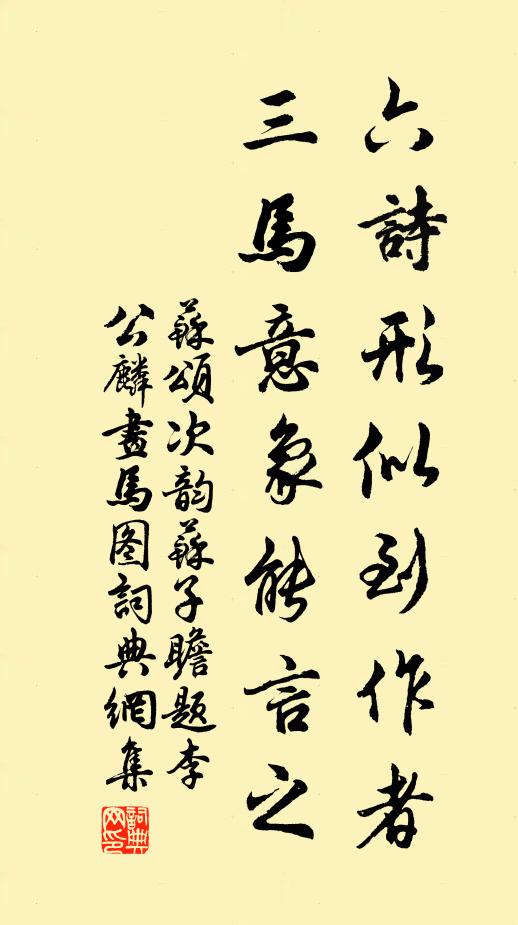 六詩形似到作者
三馬意象能言之
蘇頌次韵蘇子瞻題李
公麟畫馬图詞典網集
詞典网印